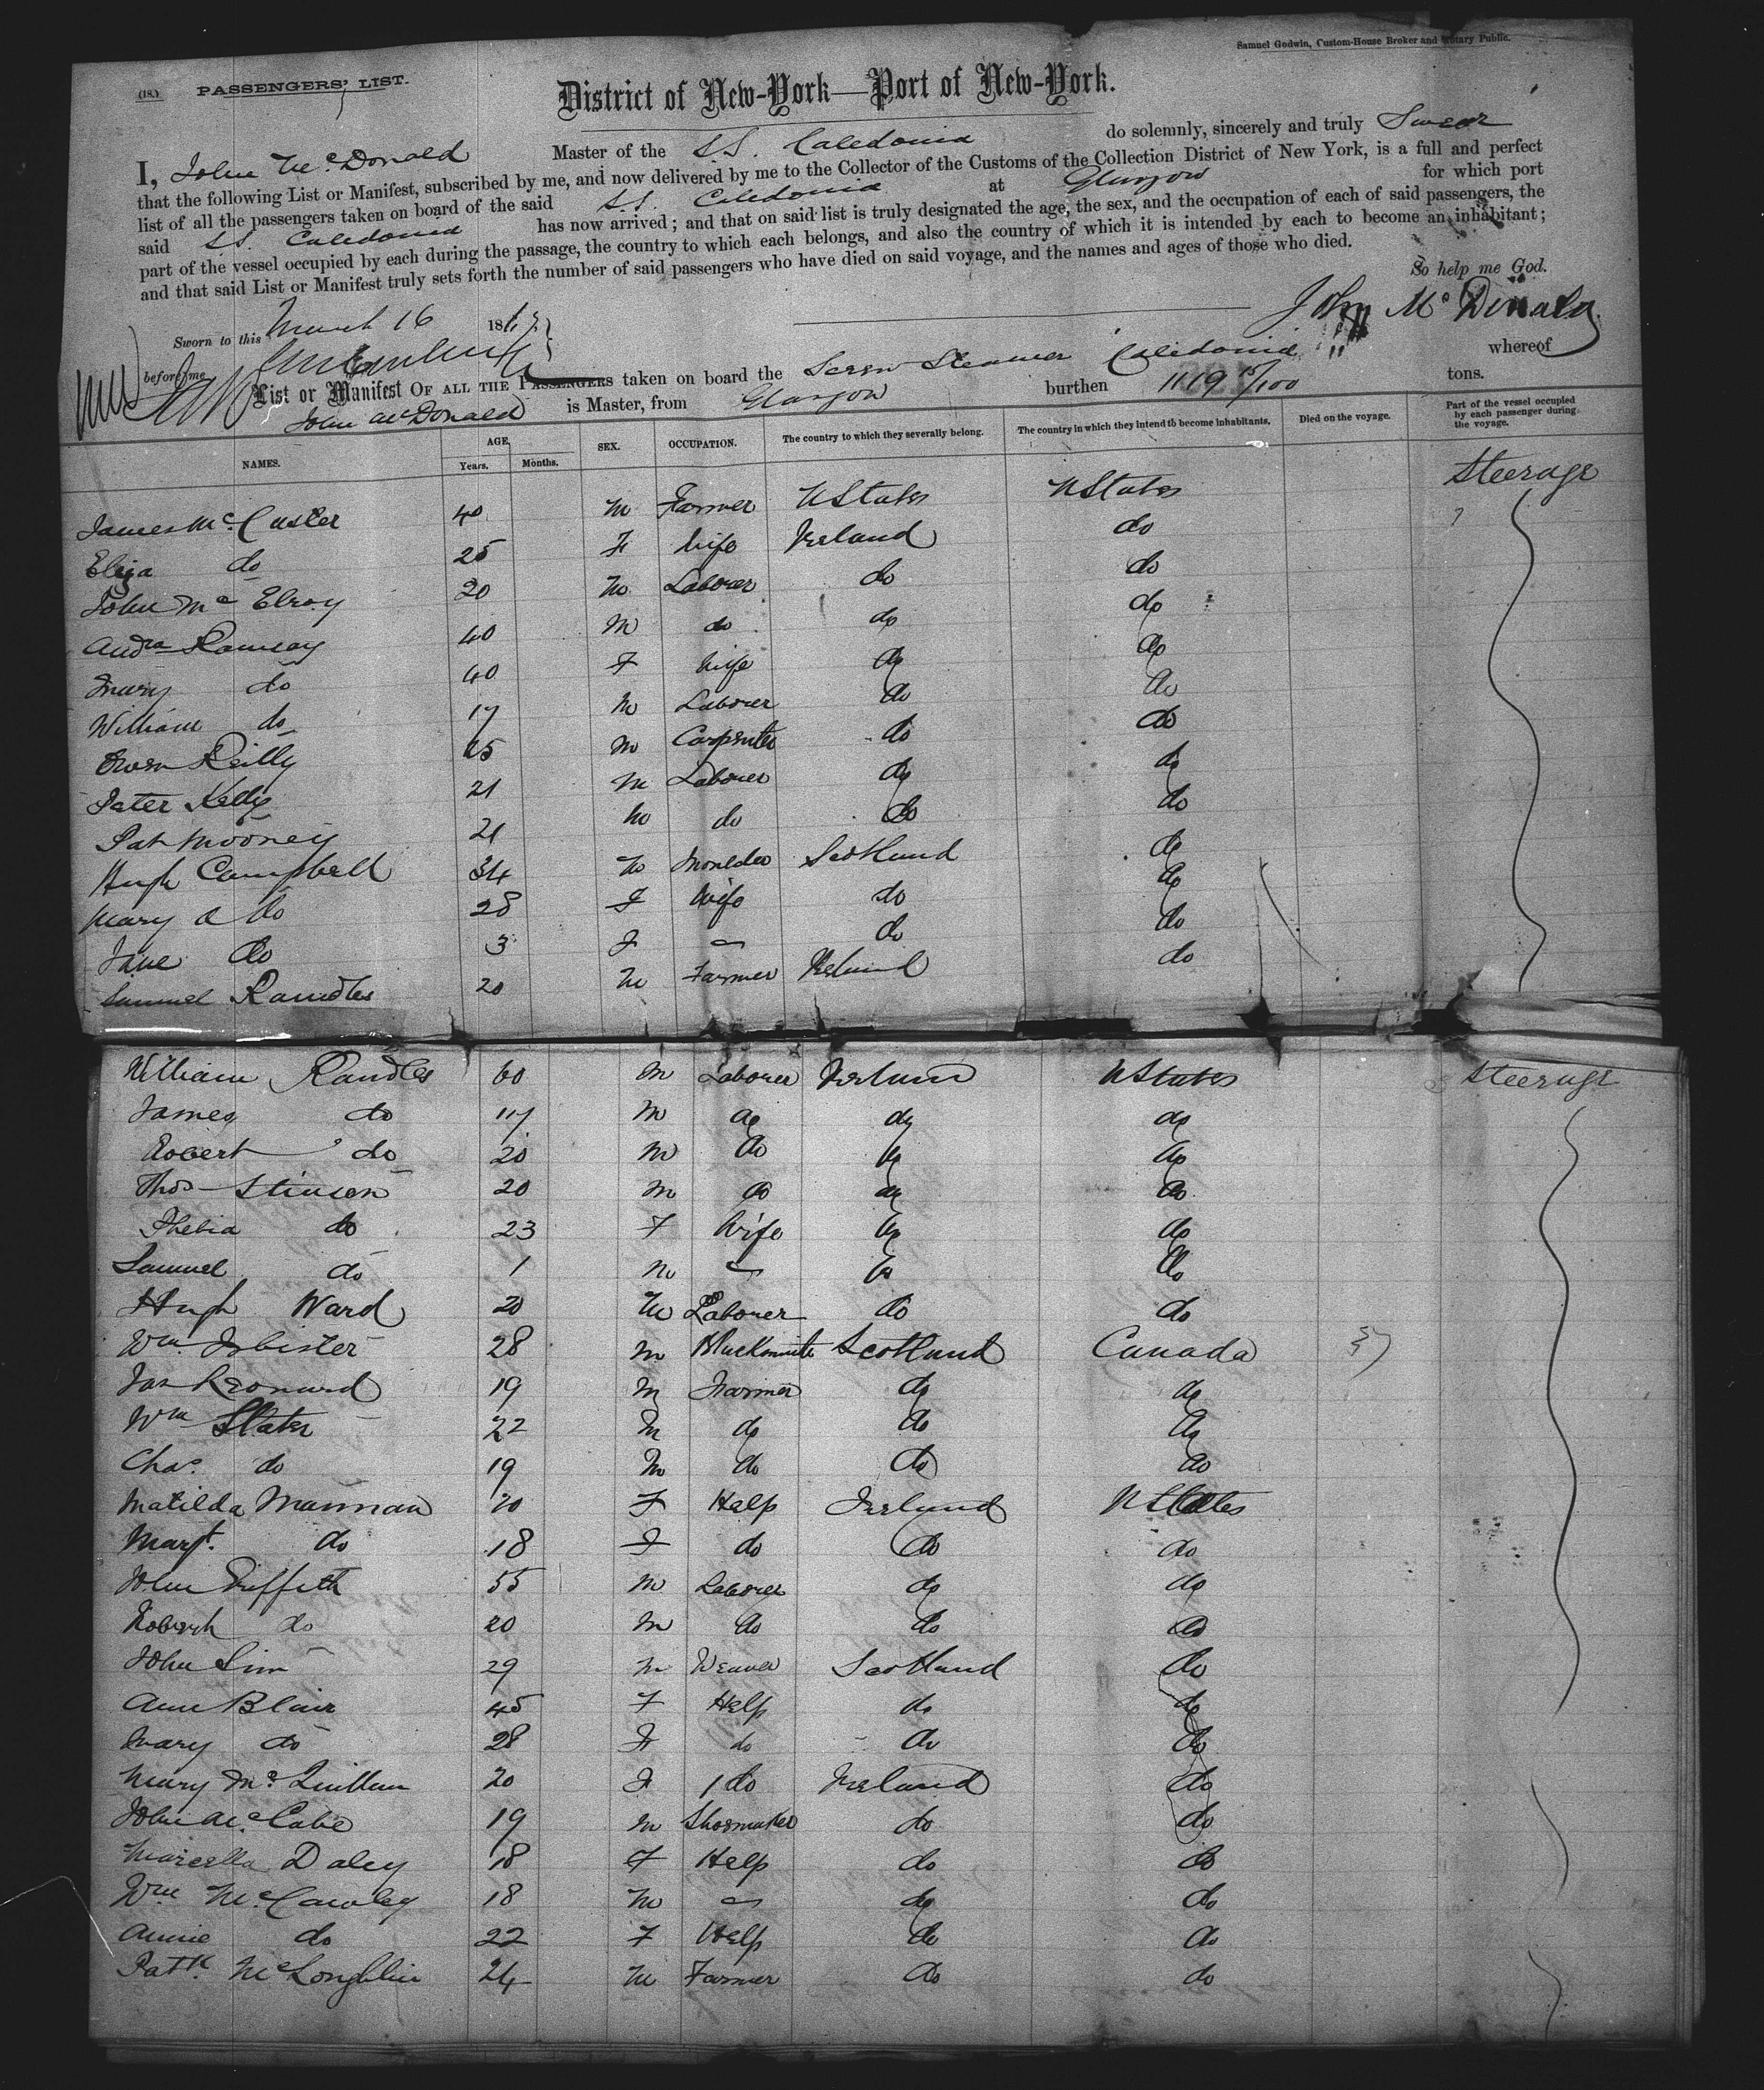 Samuel Godwin, Custom-House Broker and Notary Public.
(18.) PASSENGERS' LIST.
District of New-York—Port of New-York.
I, John McDonald Master of the S.S. Caledonia do solemnly, sincerely and truly Swear
that the following List or Manifest, subscribed by me, and now delivered by me to the Collector of the Customs of the Collection District of New York, is a full and perfect
list of all the passengers taken on board of the said S.S. Caledonia at Glasgow for which port
said S.S. Caledonia has now arrived; and that on said list is truly designated the age, the sex, and the occupation of each of said passengers, the
part of the vessel occupied by each during the passage, the country to which each belongs, and also the country of which it is intended by each to become an inhabitant;
and that said List or Manifest truly sets forth the number of said passengers who have died on said voyage, and the names and ages of those who died.
So help me God.
Sworn to this March 16 186
John McDonald
before me
List or Manifest OF ALL THE PASSENGERS taken on board the Screw Steamer Caledonia whereof
John McDonald is Master, from Glasgow burthen 1119 15/100 tons.
NAMES. AGE, Years. Months. SEX. OCCUPATION. The country to which they severally belong. The country in which they intend to become inhabitants. Died on the voyage. Part of the vessel occupied by each passenger during the voyage.
James McCusker 40 M Farmer UStates UStates Steerage
Eliza do 25 F Wife Ireland do
John McElroy 20 M Laborer do do
Andw Ramsay 40 M do do do
Mary do 40 F Wife do do
William do 17 M Laborer do do
Owen Reilly 25 M Carpenter do do
Peter Kelly 21 M Laborer do do
Pat Mooney 21 M do do do
Hugh Campbell 34 M Moulder Scotland do
Mary A do 28 F Wife do do
Jane do 3 F — do do
Samuel Randles 20 M Farmer Ireland do
William Randles 60 M Laborer Ireland UStates Steerage
James do 17 M do do do
Robert do 20 M do do do
Thos Stinson 20 M do do do
Phebia do 23 F Wife do do
Samuel do 1 M — do do
Hugh Ward 20 M Laborer do do
Wm Isbister 28 M Blacksmith Scotland Canada
Jas Leonard 19 M Farmer do do
Wm Slater 22 M do do do
Chas. do 19 M do do do
Matilda Mannan 20 F Help Ireland UStates
Margt. do 18 F do do do
John Griffith 55 M Laborer do do
Robert do 20 M do do do
John Sim 29 M Weaver Scotland do
Ann Blair 45 F Help do do
Mary do 28 F do do do
Mary McQuillan 20 F do Ireland do
John McCabe 19 M Shoemaker do do
Marcella Daley 18 F Help do do
Wm McCawley 18 M — do do
Annie do 22 F Help do do
Patk McLoughlin 24 M Farmer do do